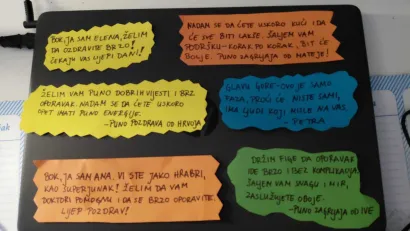 BOK, JA SAM ELENA, ŽELIM
DA OZDRAVITE BRZO!
ČEKAJU VAS LIJEPI DANI!
NADAM SE DA ĆETE USKORO KUĆI I DA
ĆE SVE BITI LAKŠE. ŠALJEM VAM
PODRŠKU-KORAK PO KORAK, BIT ĆE
BOLJE. PUNO ZAGRLJAJA OD MATEJE!
ŽELIM VAM PUNO DOBRIH VIJESTI I BRZ
OPORAVAK. NADAM SE DA ĆETE USKORO
OPET IMATI PUNO ENERGIJE.
-PUNO POZDRAVA OD HRVOJA
GLAVU GORE-OVO JE SAMO
FAZA, PROĆI ĆE. NISTE SAMI,
IMA LJUDI KOJI MISLE NA VAS.
- PETRA
BOK, JA SAM ANA. VI STE JAKO HRABRI,
KAO SUPERJUNAK! ŽELIM DA VAM
DOKTORI POMOGNU I DA SE BRZO OPORAVITE.
LIJEP POZDRAV!
DRŽIM FIGE DA OPORAVAK
IDE BRZO I BEZ KOMPLIKACIJA.
ŠALJEM VAM SNAGU I MIR,
ZASLUŽUJETE OBOJE.
-PUNO ZAGRLJAJA OD IVE